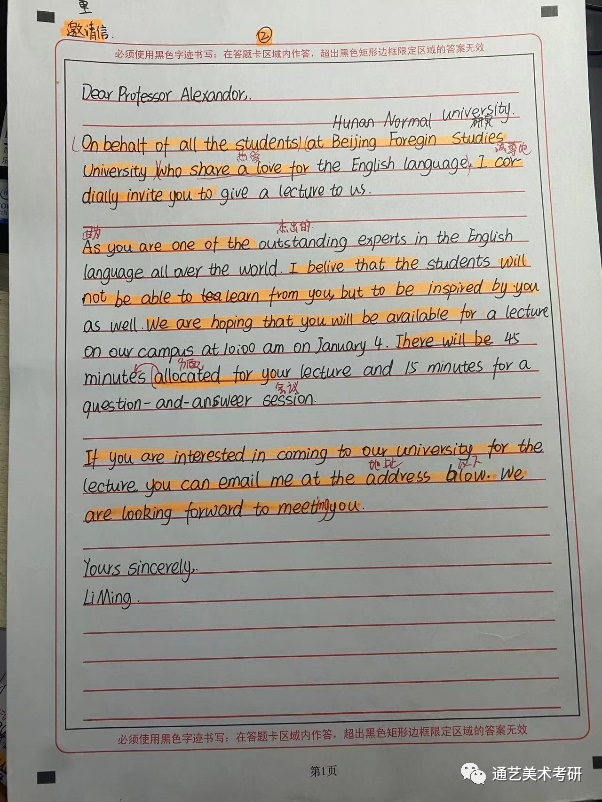 邀请信:
②
必须使用黑色字迹书写; 在答题卡区域内作答, 超出黑色矩形边框限定区域的答案无效
Dear Professor Alexandor,
Hunan Normal university
On behalf of all the students (at Beijing Foregin Studies
热爱
University) (who share a love for the English language, I cor-
dially invite you to give a lecture to us.
因为 杰出的
As you are one of the outstanding experts in the English
language all over the world. I belive that the students will
not be able to learn from you, but to be inspired by you
as well. We are hoping that you will be available for a lecture
on our campus at 10:00 am on January 4. There will be 45
分配
minutes (allocated for your lecture and 15 minutes for a
会议
question-and-answeer session.
If you are interested in coming to our university for the
地址 以下
lecture you can email me at the address blow. We
are looking forward to meeting you.
Yours sincerely,
Li Ming.
必须使用黑色字迹书写; 在答题卡区域内作答, 超出黑色矩形边框限定区域的答案无效
第1页
通艺美术考研